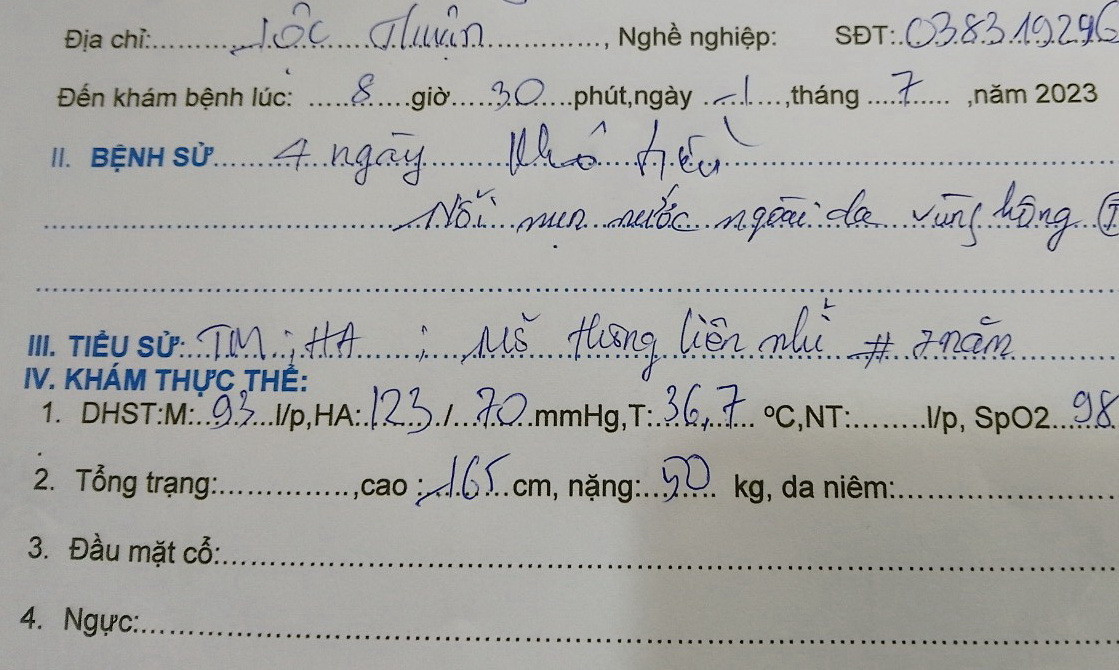 Địa chỉ:..........Lộc Thuận.............., Nghề nghiệp: SĐT:.0383192296
Đến khám bệnh lúc: .....8.....giờ.....30....phút,ngày ...1....,tháng .....7..... ,năm 2023
II. BỆNH SỬ......4 ngày.........Khô...........
.......................Nổi mụn nước ngoài da vùng hông (T
III. TIỀU SỬ:..TM.;.HA......;...Mổ thông liên nhĩ # 7 năm
IV. KHÁM THỰC THỂ:
1. DHST:M:..93...l/p,HA:.123./...70..mmHg,T:..36,7... ºC,NT:........l/p, SpO2...98
2. Tổng trạng:..............,cao :..165..cm, nặng:..50... kg, da niêm:.......................
3. Đầu mặt cổ:.......................................................................
4. Ngực:.......................................................................